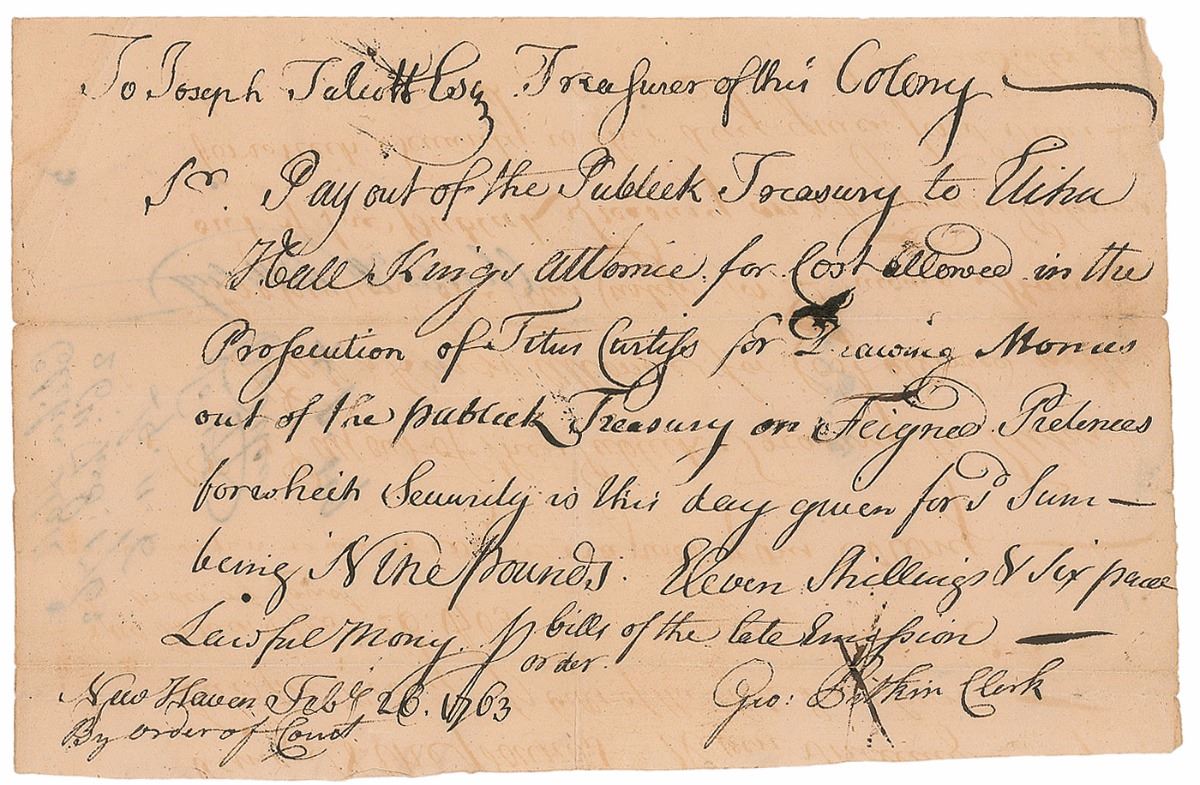 To Joseph Talcott Esq Treasurer of this Colony
Sr. Pay out of the Publick Treasury to Elihu
Hall Kings Attornie for Cost allowed in the
Prosecution of Titus Curtiss for Drawing Monies
out of the publick Treasury on Feigned Pretences
for which Security is this day given for sd Sum
being Nine pounds. Eleven Shillings & Six pence
Lawful Mony p bills of the late Emission
order.
New Haven Feby 26. 1763
Geo: Pitkin Clerk
By order of Court